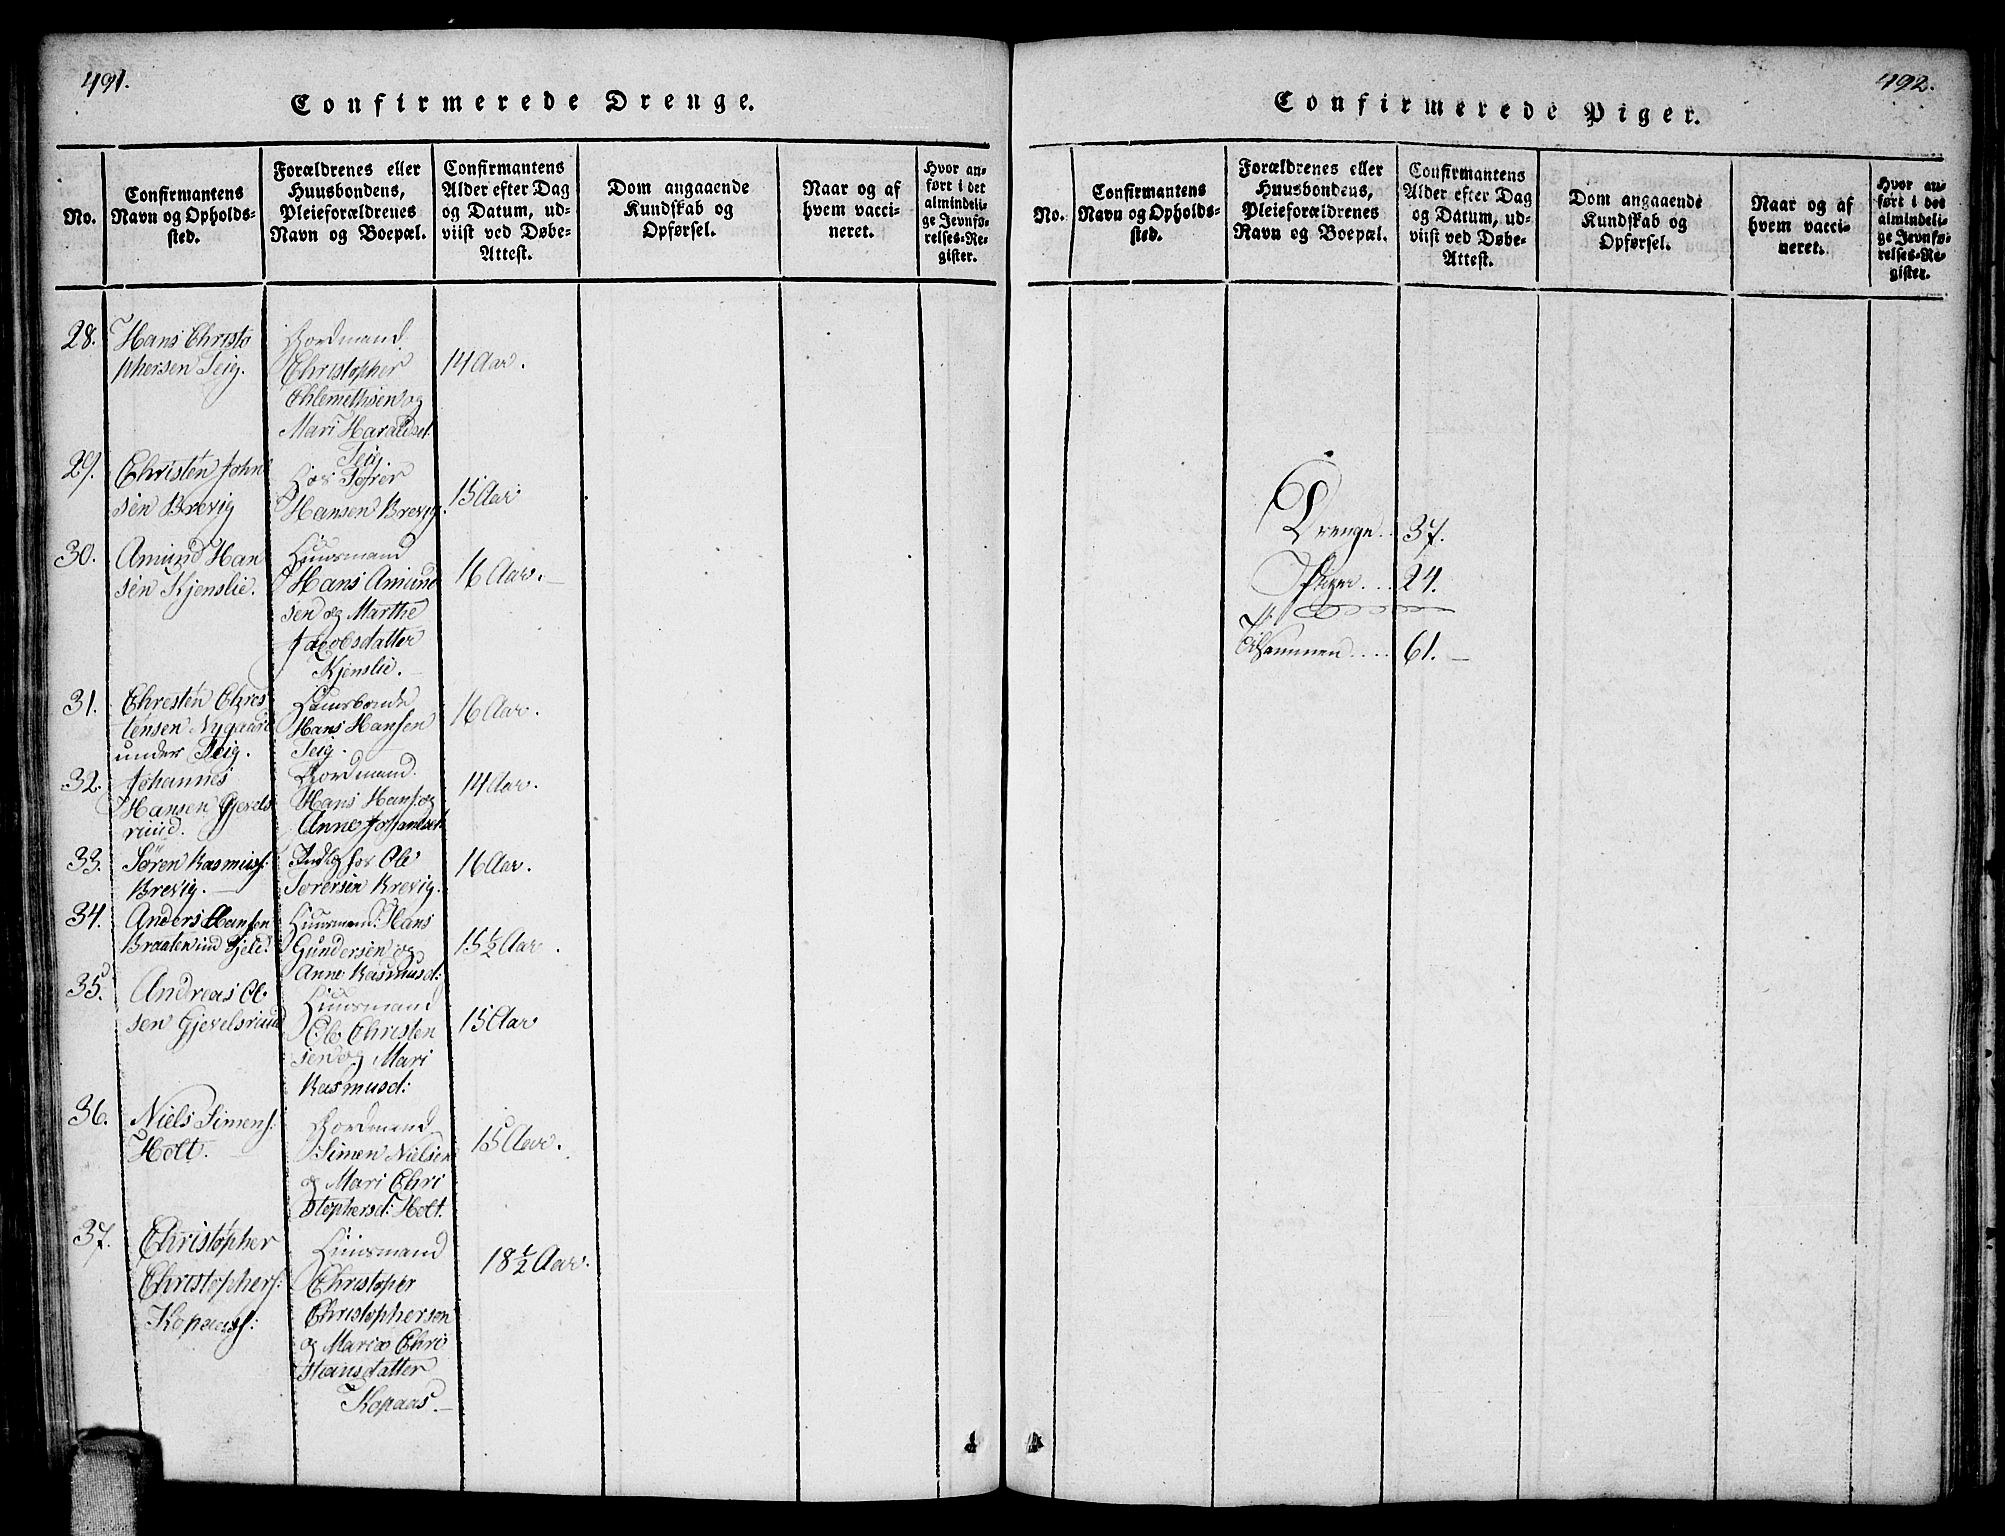 491.
Confirmerede Drenge.
No.
Confirmantens
Navn og Opholds-
sted.
Forældrenes eller
Huusbondens,
Pleieforældrenes
Navn og Boepæl.
Confirmantens
Alder efter Dag
og Datum, ud-
viist ved Døbe-
Attest.
Dom angaaende
Kundskab og
Opførsel.
Naar og af
hvem vacci-
neret.
Hvor an-
ført i det
almindeli-
ge Jevnfø-
relses-Re-
gister.
28.
Hans Christo
phersen Teig.
Gordmand
Christopher
Chlemethsen og
Mari Haraldsd.
Teig
14 Aar.
29.
Christen John
sen Brevig
Hos Sofrer
Hansen Brevig.
15 Aar
30.
Amund Han
sen Kjenslie.
Huusmand
Hans Amund
sen og Marthe
Jacobsdatter
Kjenslie.
16 Aar.
31.
Christen Chres
tensen Nygaard
under Teig.
Huusbonde
Hans Hansen
Teig.
16 Aar.
32.
Johannes
Hansen Gjevels
rud.
Gordmand.
Hans Hans. og
Anne Johannesd.
14 Aar.
33.
Søren Rasmus:
Brevig.
Indlg hos Ole
Sorensen Brevig.
16 Aar.
34.
Anders Hansen
Braaten und Gjele:
Huusmand: Hans
Gundersen og
Anne Rasmusd:
15 1/2 Aar.
35.
Andreas Ol
sen Gjevelsrud
Huusmand
Ole Christen
sen og Mari
Rasmusd:
15 Aar
36.
Niels Simens:
Holt.
Gordmand
Simen Nielsen
og Mari Chri
stophersd: Holt.
15 Aar.
37.
Christopher
Christophers:
Kopaas:
Huusmand
Christoper
Christophersen
og Maria Chri
stiansdatter
Kopaas.
18 1/2 Aar.
492.
Confirmerede Piger.
No.
Confirmantens
Navn og Opholds-
sted.
Forældrenes eller
Huusbondens,
Pleieforældrenes
Navn og Boepæl.
Confirmantens
Alder efter Dag
og Datum, ud-
viist ved Døbe-
Attest.
Dom angaaende
Kundskab og
Opførsel.
Naar og af
hvem vacci-
neret.
Hvor an-
ført i det
almindeli-
ge Jevnfø-
relses-Re-
gister.
Drenge.. 37.
Piger.... 24.
Tilsammen.... 61.